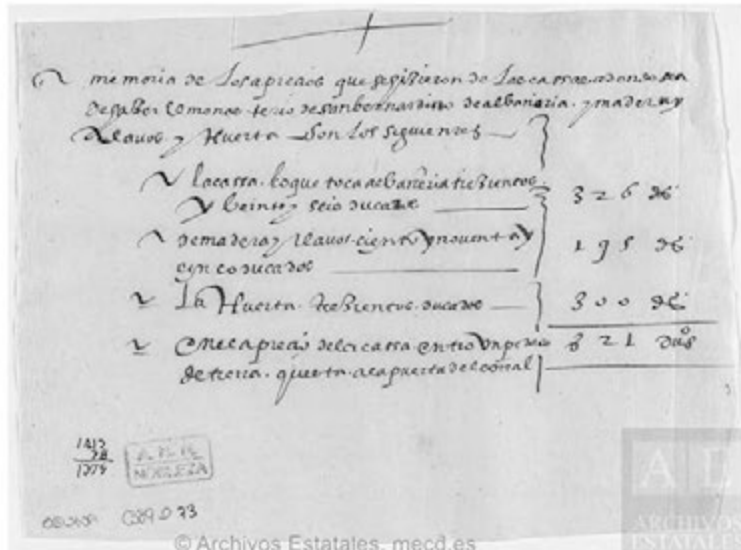 memoria de los aprecios que se hizieron de las cassas adonde sea
de saber el monasterio de san bernardino de albaniria. y madera y
clauos y Huerta son los siguientes
la cassa. lo que toca a albañiria trezientos
y beinte y seis ducados 326 ds
de madera y clauos. ciento y noventa y
cinco ducados 195 ds
La Huerta. trezientos. ducados 300 ds
en el aprecio de la cassa. entro un pedaço 821 dus
de tierra. questa a la puerta del corral
A.H.N.
NOBLEZA
AE
ARCHIVOS
ESTATALES
© Archivos Estatales, mecd.es